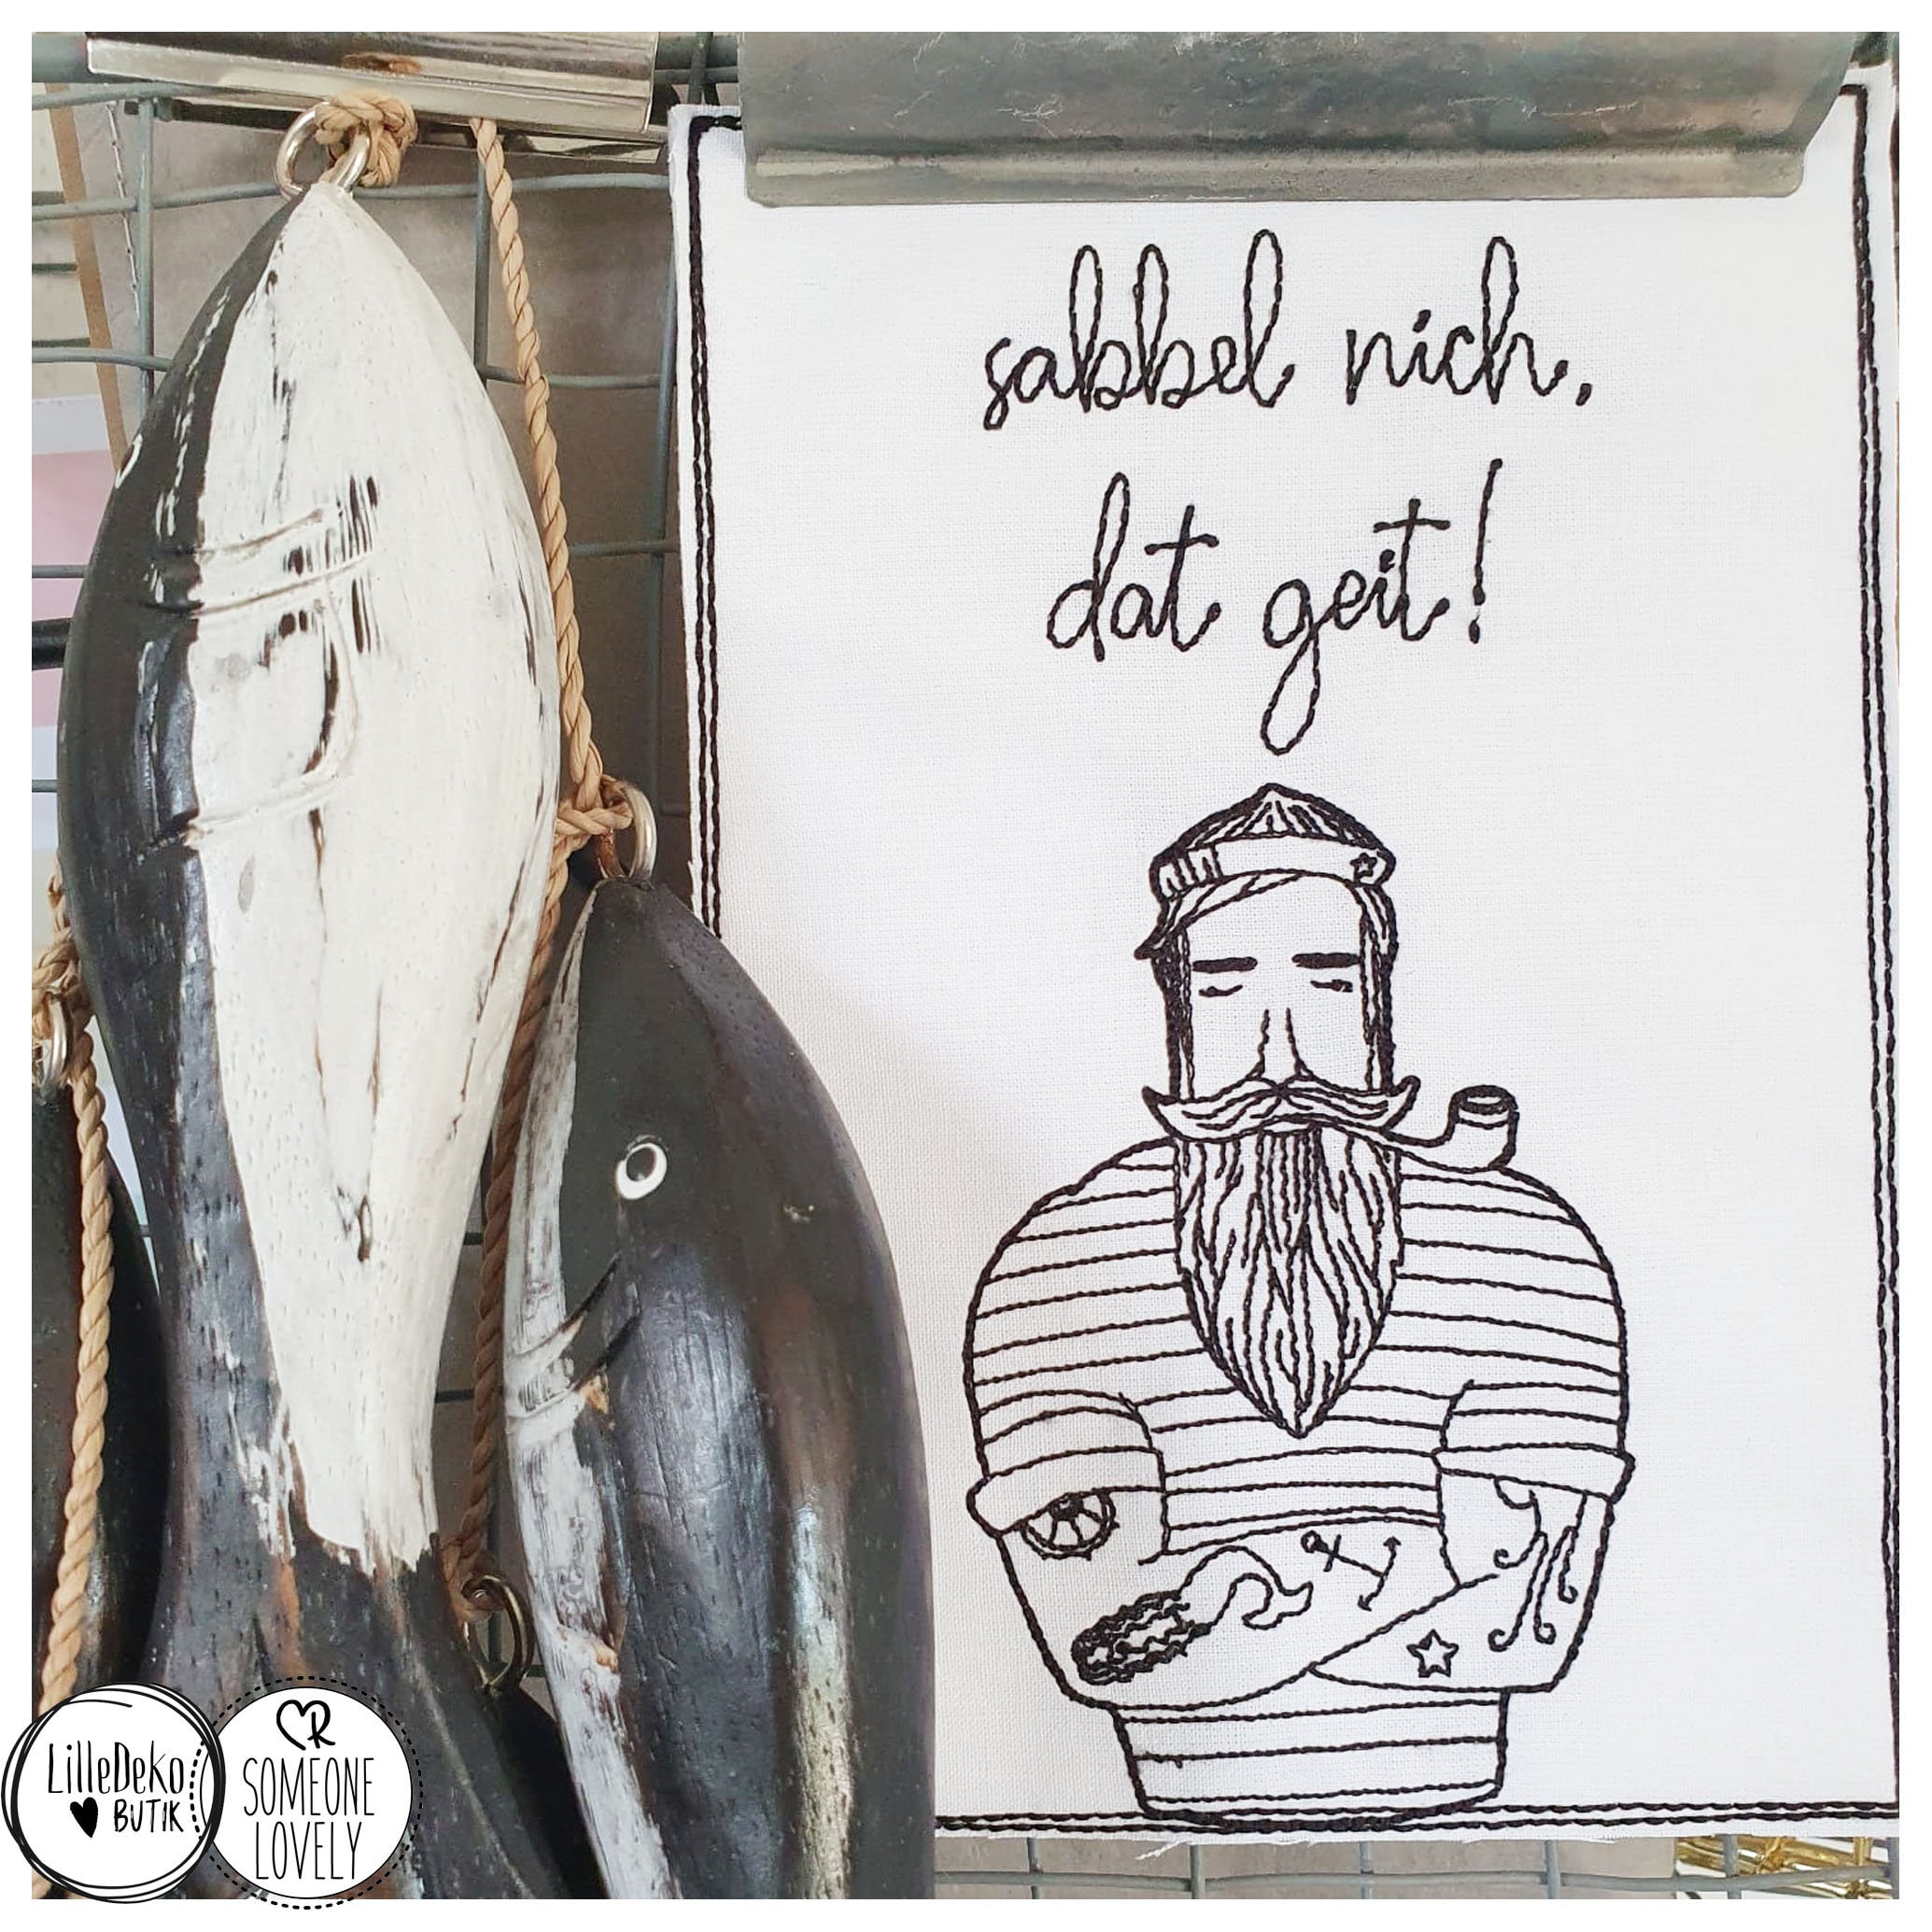 sabbel nich,
dat geit!
LilleDeko
BUTIK
SOMEONE
LOVELY